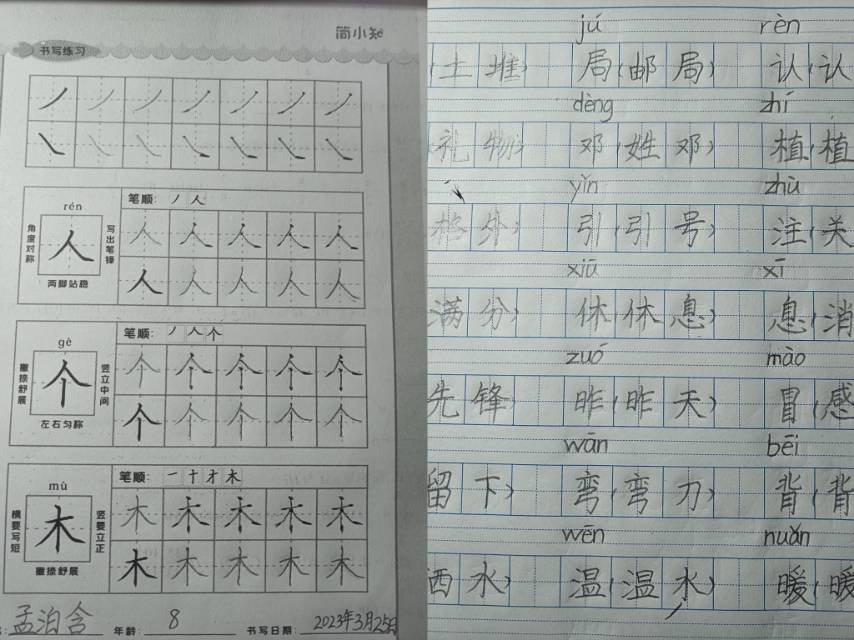 简小知
书写练习
rén
笔顺: 丿 人
角度对称
人
写出笔锋
两脚站稳
人 人 人 人 人
人 人 人 人 人
gè
笔顺: 丿 人 个
撇捺舒展
个
竖立中间
左右匀称
个 个 个 个 个
个 个 个 个 个
mù
笔顺: 一 十 才 木
横要写短
木
竖要立正
撇捺舒展
木 木 木 木 木
木 木 木 木 木
孟泊含 年龄: 8 书写日期: 2023年3月25日
jú rèn
(土堆) 局(邮局) 认(认
dèng zhí
(礼物) 邓(姓邓) 植(植
yǐn zhù
格外) 引(引号) 注(关
xiū xī
满分) 休(休息) 息(消
zuó mào
先锋 昨(昨天) 冒(感
wān bēi
留下) 弯(弯刀) 背(背
wēn nuǎn
水) 温(温水) 暖(暖